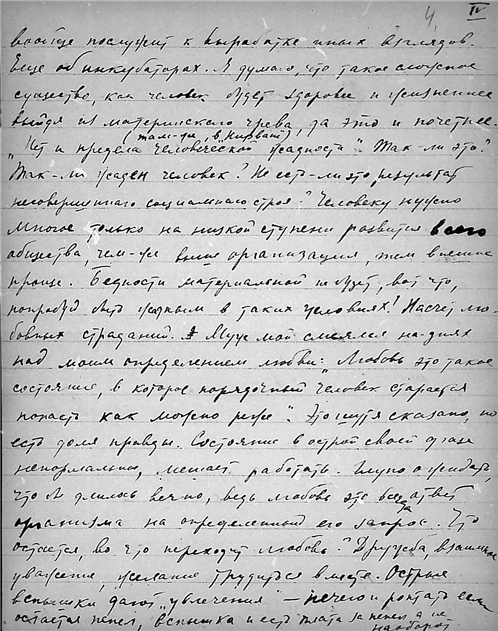 4. IV
вообще послужит к выработке иных взглядов.
Еще об инкубаторах. Я думаю, что такое сложное
существо, как человек будет здоровее и жизненнее
выйдя из материнского чрева, да это и почетнее.
(там-же, в „Нирване“)
„Нет и предела человеческой жадности“. Так-ли это?
Так-ли жаден человек? Не есть-ли это результат
несовершенного социального строя? Человеку нужно
многое только на низкой ступени развития всего
общества, чем-же выше организация, тем внешне
проще. Бедности материальной не будет, вот что,
попробуй быть жадным в таких условиях! Насчет лю-
бовных страданий. Муж мой смеялся на-днях
над моим определением любви: „Любовь это такое
состояние, в которое порядочный человек старается
попасть как можно реже“. Это шутя сказано, но
есть доля правды. Состояние в острой своей фазе
ненормально, мешает работать. Глупо ожидать,
что б длилось вечно, ведь любовь это ответ
организма на определенный его запрос. Что
остается, во что переходит любовь? Дружба, взаимное
уважение, желание трудиться вместе. Острые
вспышки дают „увлечения“ — нечего и роптать если
остается пепел, вспышка и есть плата за пепел а не
наоборот